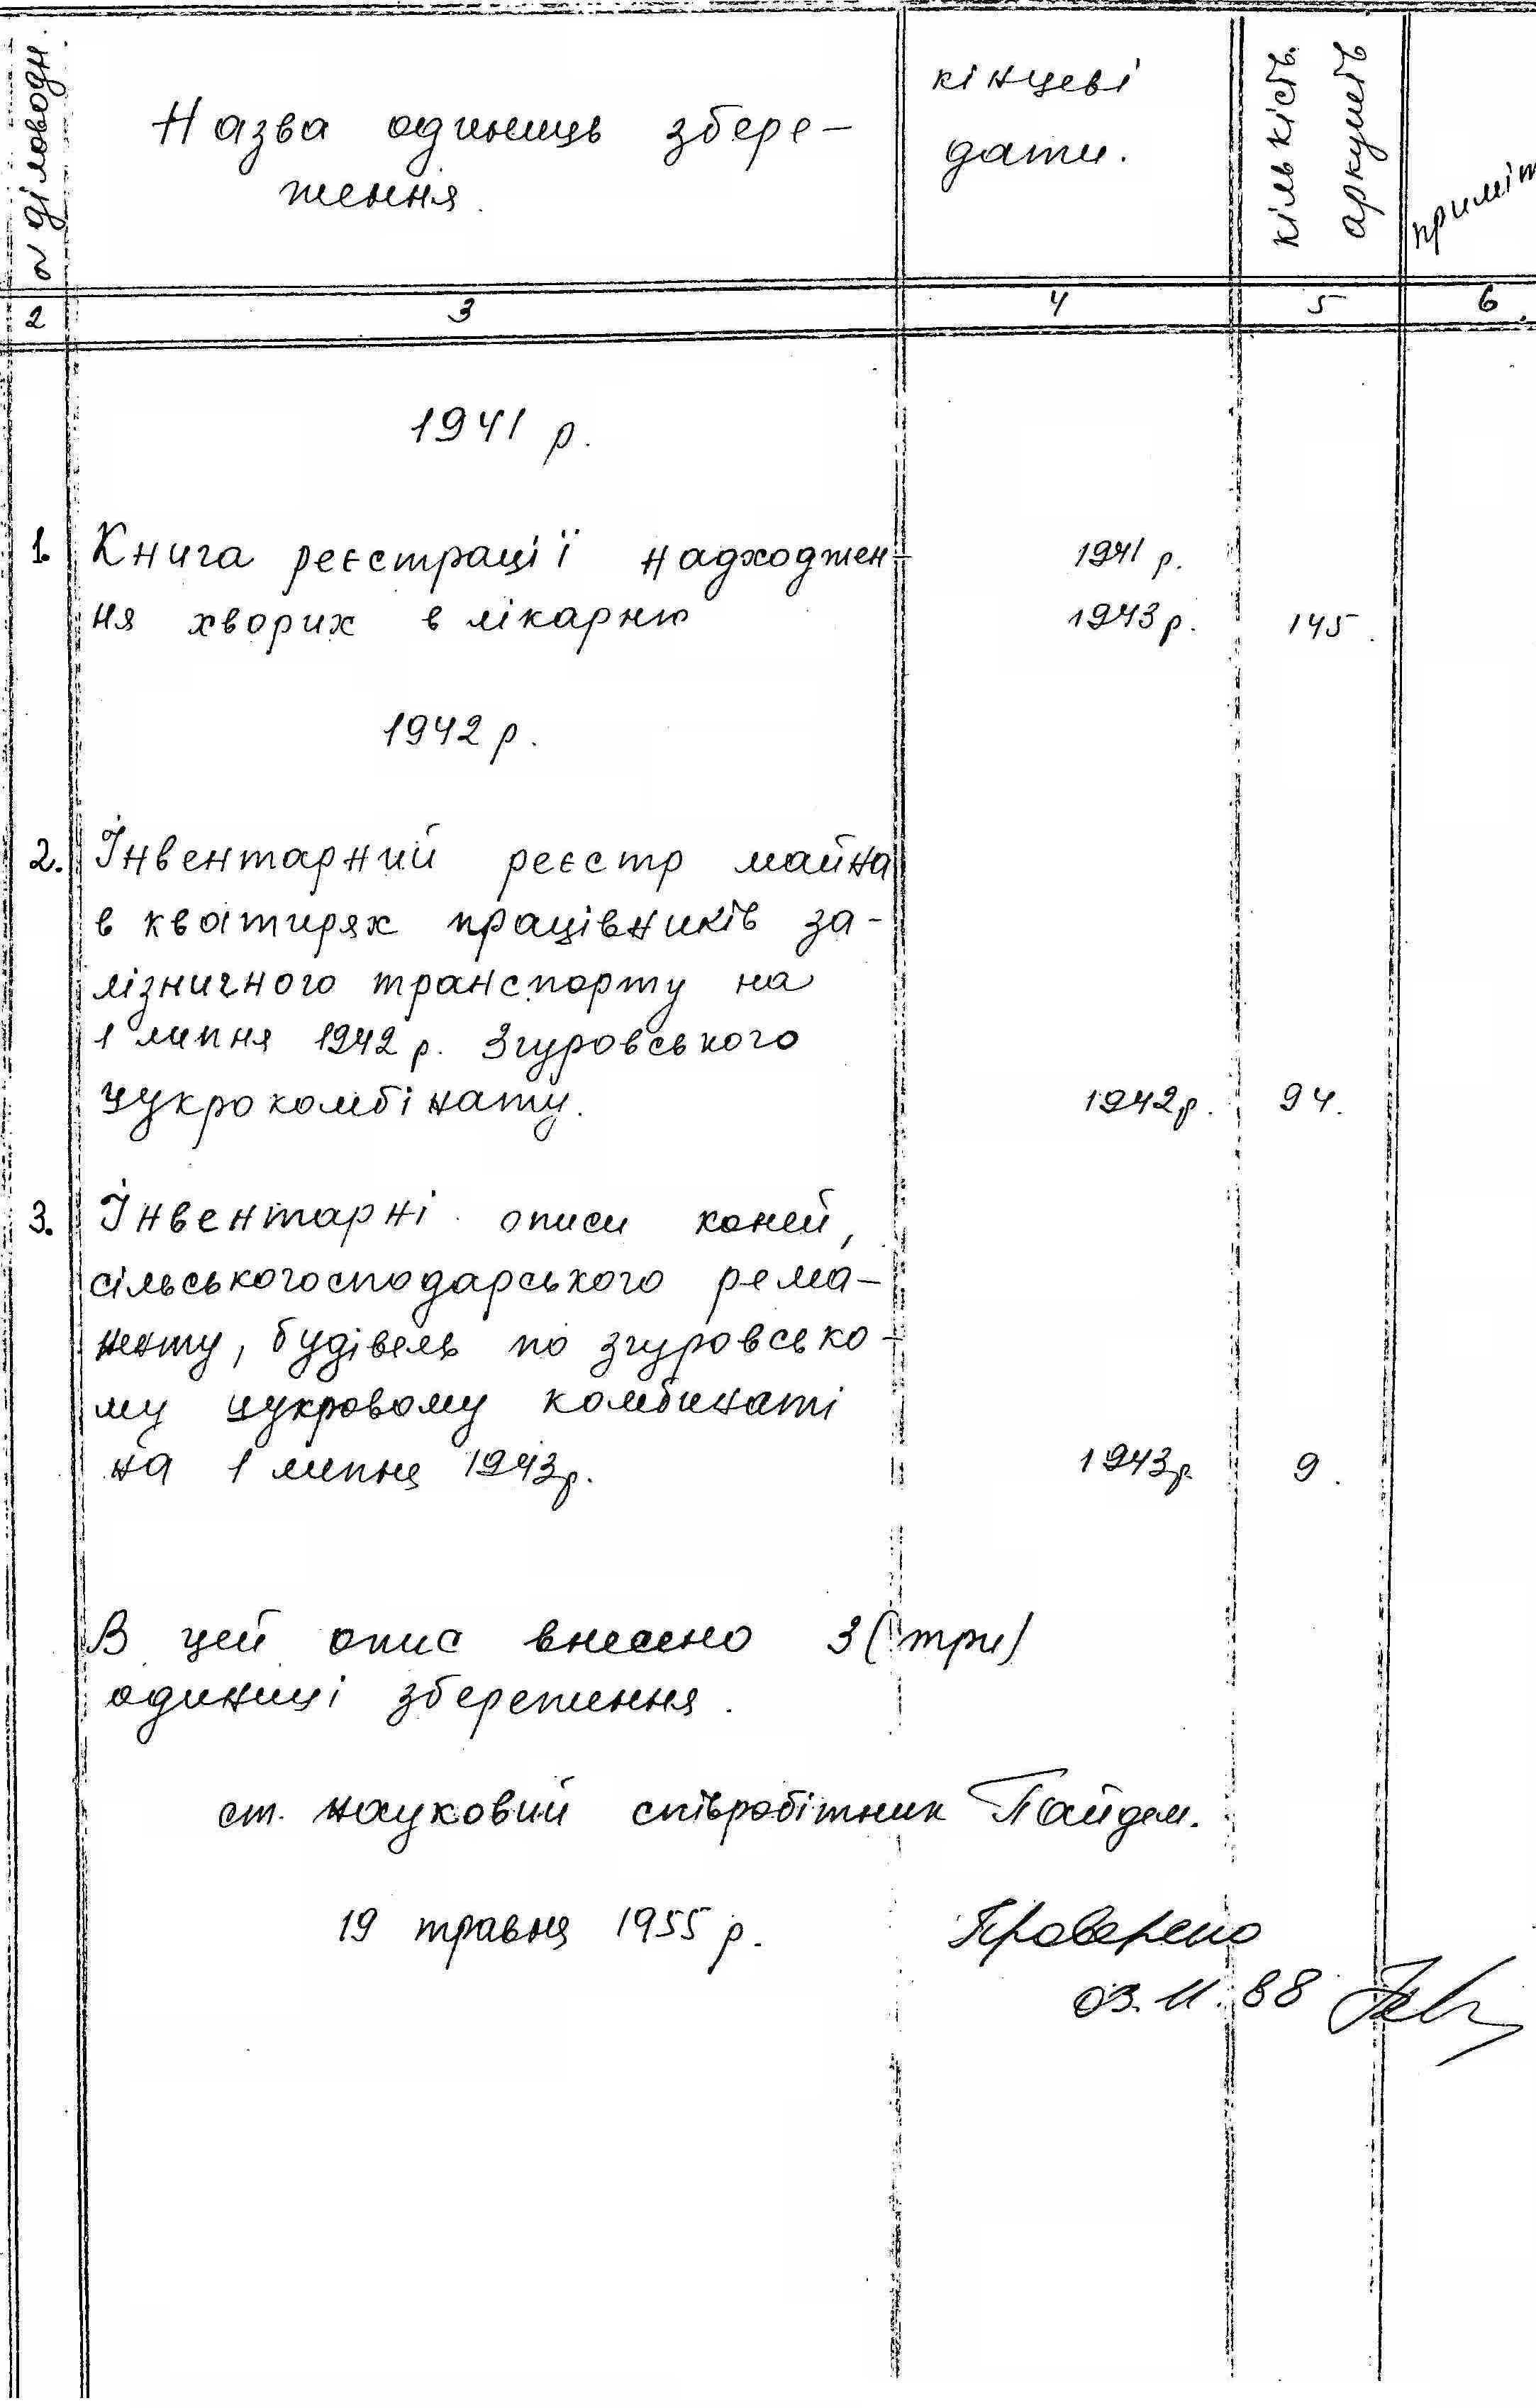 № діловодн.
Назва одиниць збере-
ження.
кінцеві
дати.
кількість
аркушів
приміт
2 3 4 5 6
1941 р.
1. Книга реєстрації надходжен- 1941 р.
ня хворих в лікарню 1943 р. 145
1942 р.
2. Інвентарний реєстр майна
в кватирях працівників за-
лізничного транспорту на
1 липня 1942 р. Згуровського
цукрокомбінату. 1942 р. 94.
3. Інвентарні описи коней,
сільськогосподарського рема-
ненту, будівель по згуровсько-
му цукровому комбинаті
на 1 липня 1943 р. 1943 р. 9.
В цей опис внесено 3 (три)
одиниці збереження.
ст. науковий співробітник
19 травня 1955 р. Проверено
03.11.88